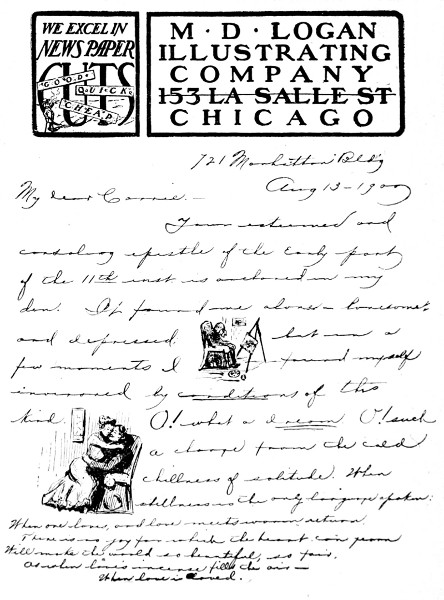 WE EXCEL IN
NEWSPAPER
CUTS
GOOD
QUICK
CHEAP
M · D · LOGAN
ILLUSTRATING
COMPANY
153 LA SALLE ST
CHICAGO
721 Manhattan Bldg
Aug 13 - 1900
My dear Carrie. -
Your esteemed and
consoling epistle of the early part
of the 11th inst is anchored in my
den. It found me alone - lonesome
and depressed but in a
few moments I found myself
surrounded by conditions of this
kind. O! what a dream O! such
a change from the cold
chillness of solitude. When
stillness is the only language spoken:
When one loves, and love meets warm return
There is no joy for which the heart can yearn
Will make the world so beautiful, so fair,
As when love's incense fills the air -
When love is loved.